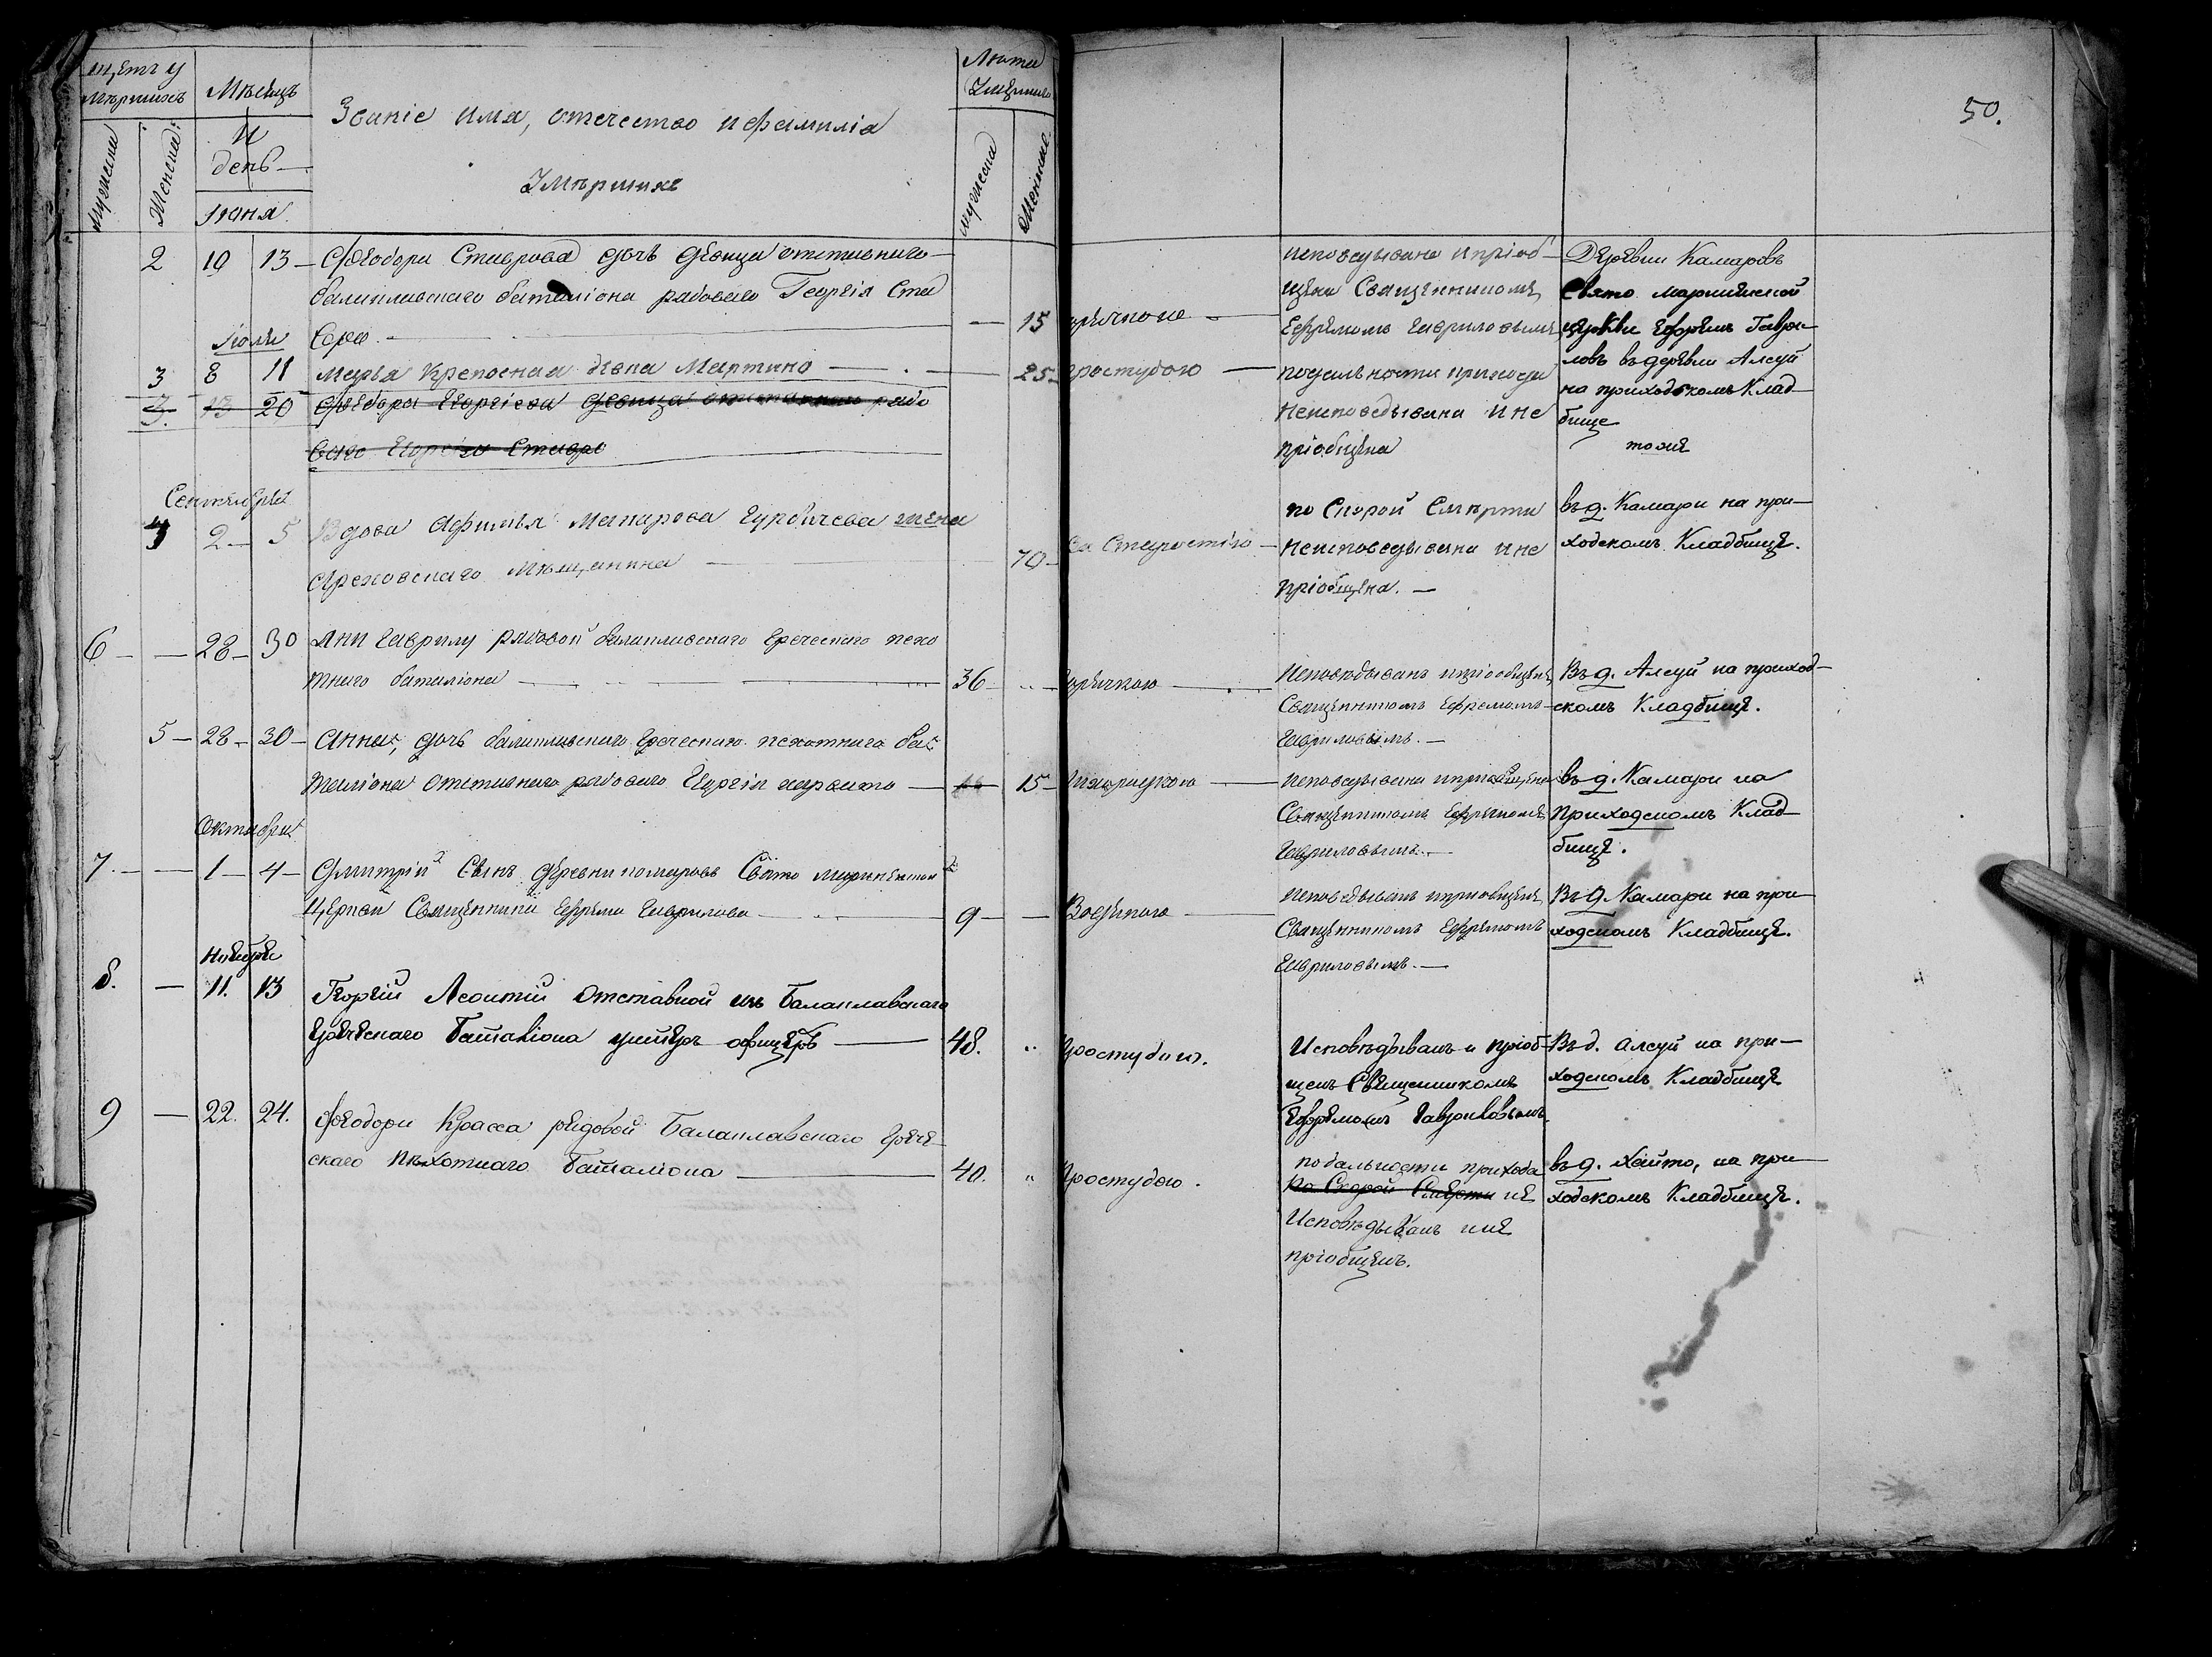 щетъ у
мѣршихъ
Мѣсецъ
И
день
Іюня
мужеска
Женска
Званіе имя, отечество и фамиліа
Умѣршихъ
Лѣта
Умершихъ
мужеска
Женска
50.
2 10 13 Ѳеодора Ставрова дочь девица отставнаго
балаклавскаго баталіона рядоваго Георгія Ста
Іюля
вра
15 горячкою
исповедывана и пріоб
щена Священникомъ
Ефремомъ Гавриловымъ
Деревни Камаровъ
Свято Маріинской
церкви Ефремъ Гаври
ловъ въ деревни Алсуй
на приходскомъ Клад
бище
3 8 11 Марья крепосная Мартино
25 простудою
подальности прихода
неисповедывана и не
пріобщена
тоже
3. 13 20 Ѳеодора Георгіева девица отставнаго рядо
ваго Георгія Ставра
Сентября
4 2 5 Вдова Афимья Макарова жена
Ореховскаго мѣщанина
70 Старостію
по Скорой Смѣрти
неисповедывана и не
пріобщена.
въ д. Камари на при
ходскомъ Кладбище.
6 28 30 Яни Гаврилу рядовой балаклавскаго греческаго пехо
тнаго баталіона
36 горячкою
Исповѣдыванъ и пріобщенъ
Священникомъ Ефремомъ
Гавриловымъ.
Въ д. Алсуй на приход
скомъ Кладбище.
5 28 30 Анна, дочь балаклавскаго греческаго пехотнаго ба
таліона отставнаго рядоваго Георгія
15
исповедывана и пріобщена
Священникомъ Ефремомъ
Гавриловымъ.
въ д. Камари на
приходскомъ Клад
бище.
Октября
7. 1 4 Дмитрій Сынъ деревни Комаровъ Свято Маріинской
Церкви Священника Ефрема Гаврилова
9 Водяною
Исповедыванъ и пріобщенъ
Священникомъ Ефремомъ
Гавриловымъ.
Въ д Камари на при
ходскомъ Кладбище.
Ноября
8. 11. 13 Георгій Леонтій Отставной изъ Балаклавскаго
Греческаго Баталіона унтеръ офицеръ
48. простудою.
Исповѣдыванъ и пріоб
щенъ Священникомъ
Ефремомъ Гавриловымъ.
Въ д. Алсуй на при
ходскомъ Кладбище
9 22. 24. Ѳеодори Красса рядовой Балаклавскаго Грече
скаго Пѣхотнаго Баталіона
40. простудою.
подальности прихода
по Скорой Смерти не
Исповѣдыванъ и не
пріобщенъ.
въ д. Хайто, на при
ходскомъ Кладбище.